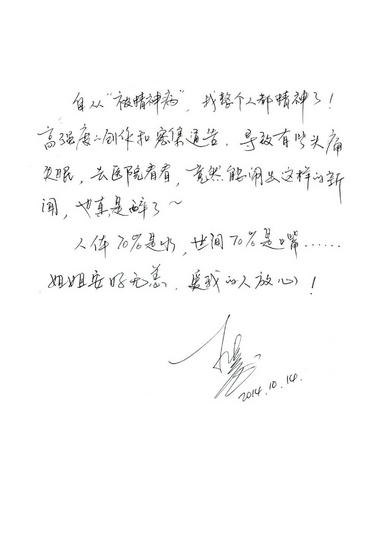 自从“被精神病”，我整个人都精神了！
高强度的创作和密集通告，导致有些头痛
失眠，去医院看看，竟然能闹出这样的新
闻，也真是醉了~
人体70%是水，世间70%是嘴……
姐姐安好无恙，爱我的人放心！
2014.10.14.